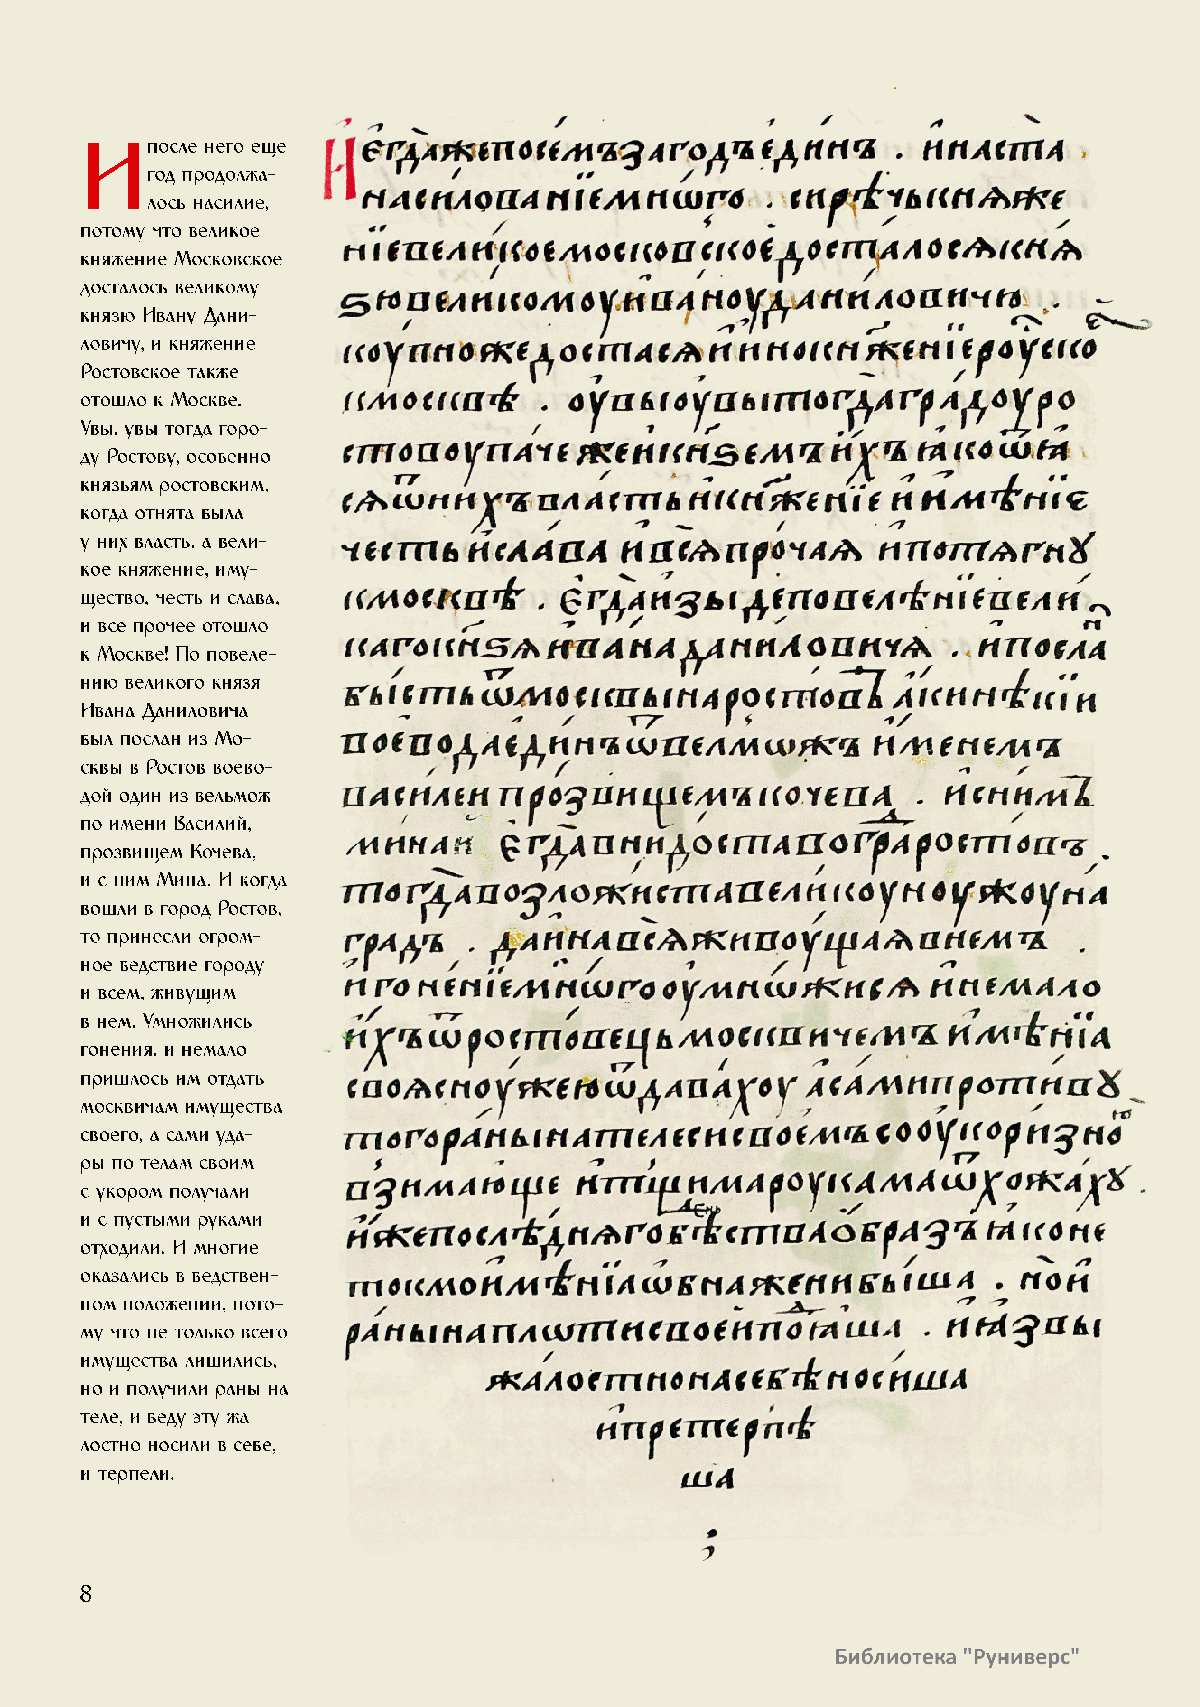 И после него еще
год продолжа-
лось насилие,
потому что великое
княжение Московское
досталось великому
князю Ивану Дани-
ловичу, и княжение
Ростовское также
отошло к Москве.
Увы, увы тогда горо-
ду Ростову, особенно
князьям ростовским,
когда отнята была
у них власть, а вели-
кое княжение, иму-
щество, честь и слава,
и все прочее отошло
к Москве! По повеле-
нию великого князя
Ивана Даниловича
был послан из Мо-
сквы в Ростов воево-
дой один из вельмож
по имени Василий,
прозвищем Кочева,
и с ним Мина. И когда
вошли в город Ростов,
то принесли огром-
ное бедствие городу
и всем, живущим
в нем. Умножились
гонения, и немало
пришлось им отдать
москвичам имущества
своего, а сами уда-
ры по телам своим
с укором получали
и с пустыми руками
отходили. И многие
оказались в бедствен-
ном положении, пото-
му что не только всего
имущества лишились,
но и получили раны на
теле, и беду эту жа
лостно носили в себе,
и терпели.
И҆егда̀жепосе́мъзагодъе҆ди́нъ . и҆наста̀ .
наси́лованїемно́го . сирѣ́чькняже́
нїевели́коемоско́вскоедоста́лосякня́
ѕювели́комоуи҆ва́ноудани́ловичю .
коупножедоста́сяи҆и҆нокня́женїероу́ско
кмосквѣ̀ . оу҆выоу҆вытогда̀гра́доуро
стовоупа́чежеи҆кн҃ѕемъи҆́хъꙗ҆коѿꙗ́
сяѿни́хъвла́стьи҆кня́женїеи҆и҆мѣ́нїе
че́стьи҆сла́ваи҆всяпро́чаяи҆потягнꙋ
кмосквѣ̀ . е҆гда̀и҆зы́деповелѣ́нїевели́
когокн҃ѕяи҆ва́надани́ловичя . и҆по́слан
бы́стьѿмосквы̀наросто́въа҆́кинѣ́кїи
воево́дае҆ди́нъѿвелмо́жъи҆́менемъ
васи́леипро́звищемъко́чева . и҆сни́мъ
мина́й е҆гда̀внидо́ставогра́дросто́въ .
тогда̀возложи́ставели́коуноу́жоуна́
гра́дъ . даи҆навсяживоу́щаявнемъ .
и҆гоне́нїемно́гооу҆мно́жисяи҆нема́ло
и҆́хъѿросто́вецьмоскви́чемъи҆мѣ́нїа
своясноу́жеюѿдава́хоу а҆са́мипроти́вꙋ
тогора́нынателесисвое́мъсооуко́ризною
взима́юще и҆тщи́мароука́маѿхожа́хꙋ .
и҆́жепослѣ́днягобѣ́дственаѻ҆́бразъꙗ҆коне
токмои҆мѣ́нїаѻбнаже́нибы́ша . но̀и҆
ра́нынапло́тисвое́йпод̾ꙗша . и҆ꙗ҆́звы
жа́лостнонасебѣ̀носи́ша
и҆претерпѣ́
ша
;
8
Библиотека "Руниверс"